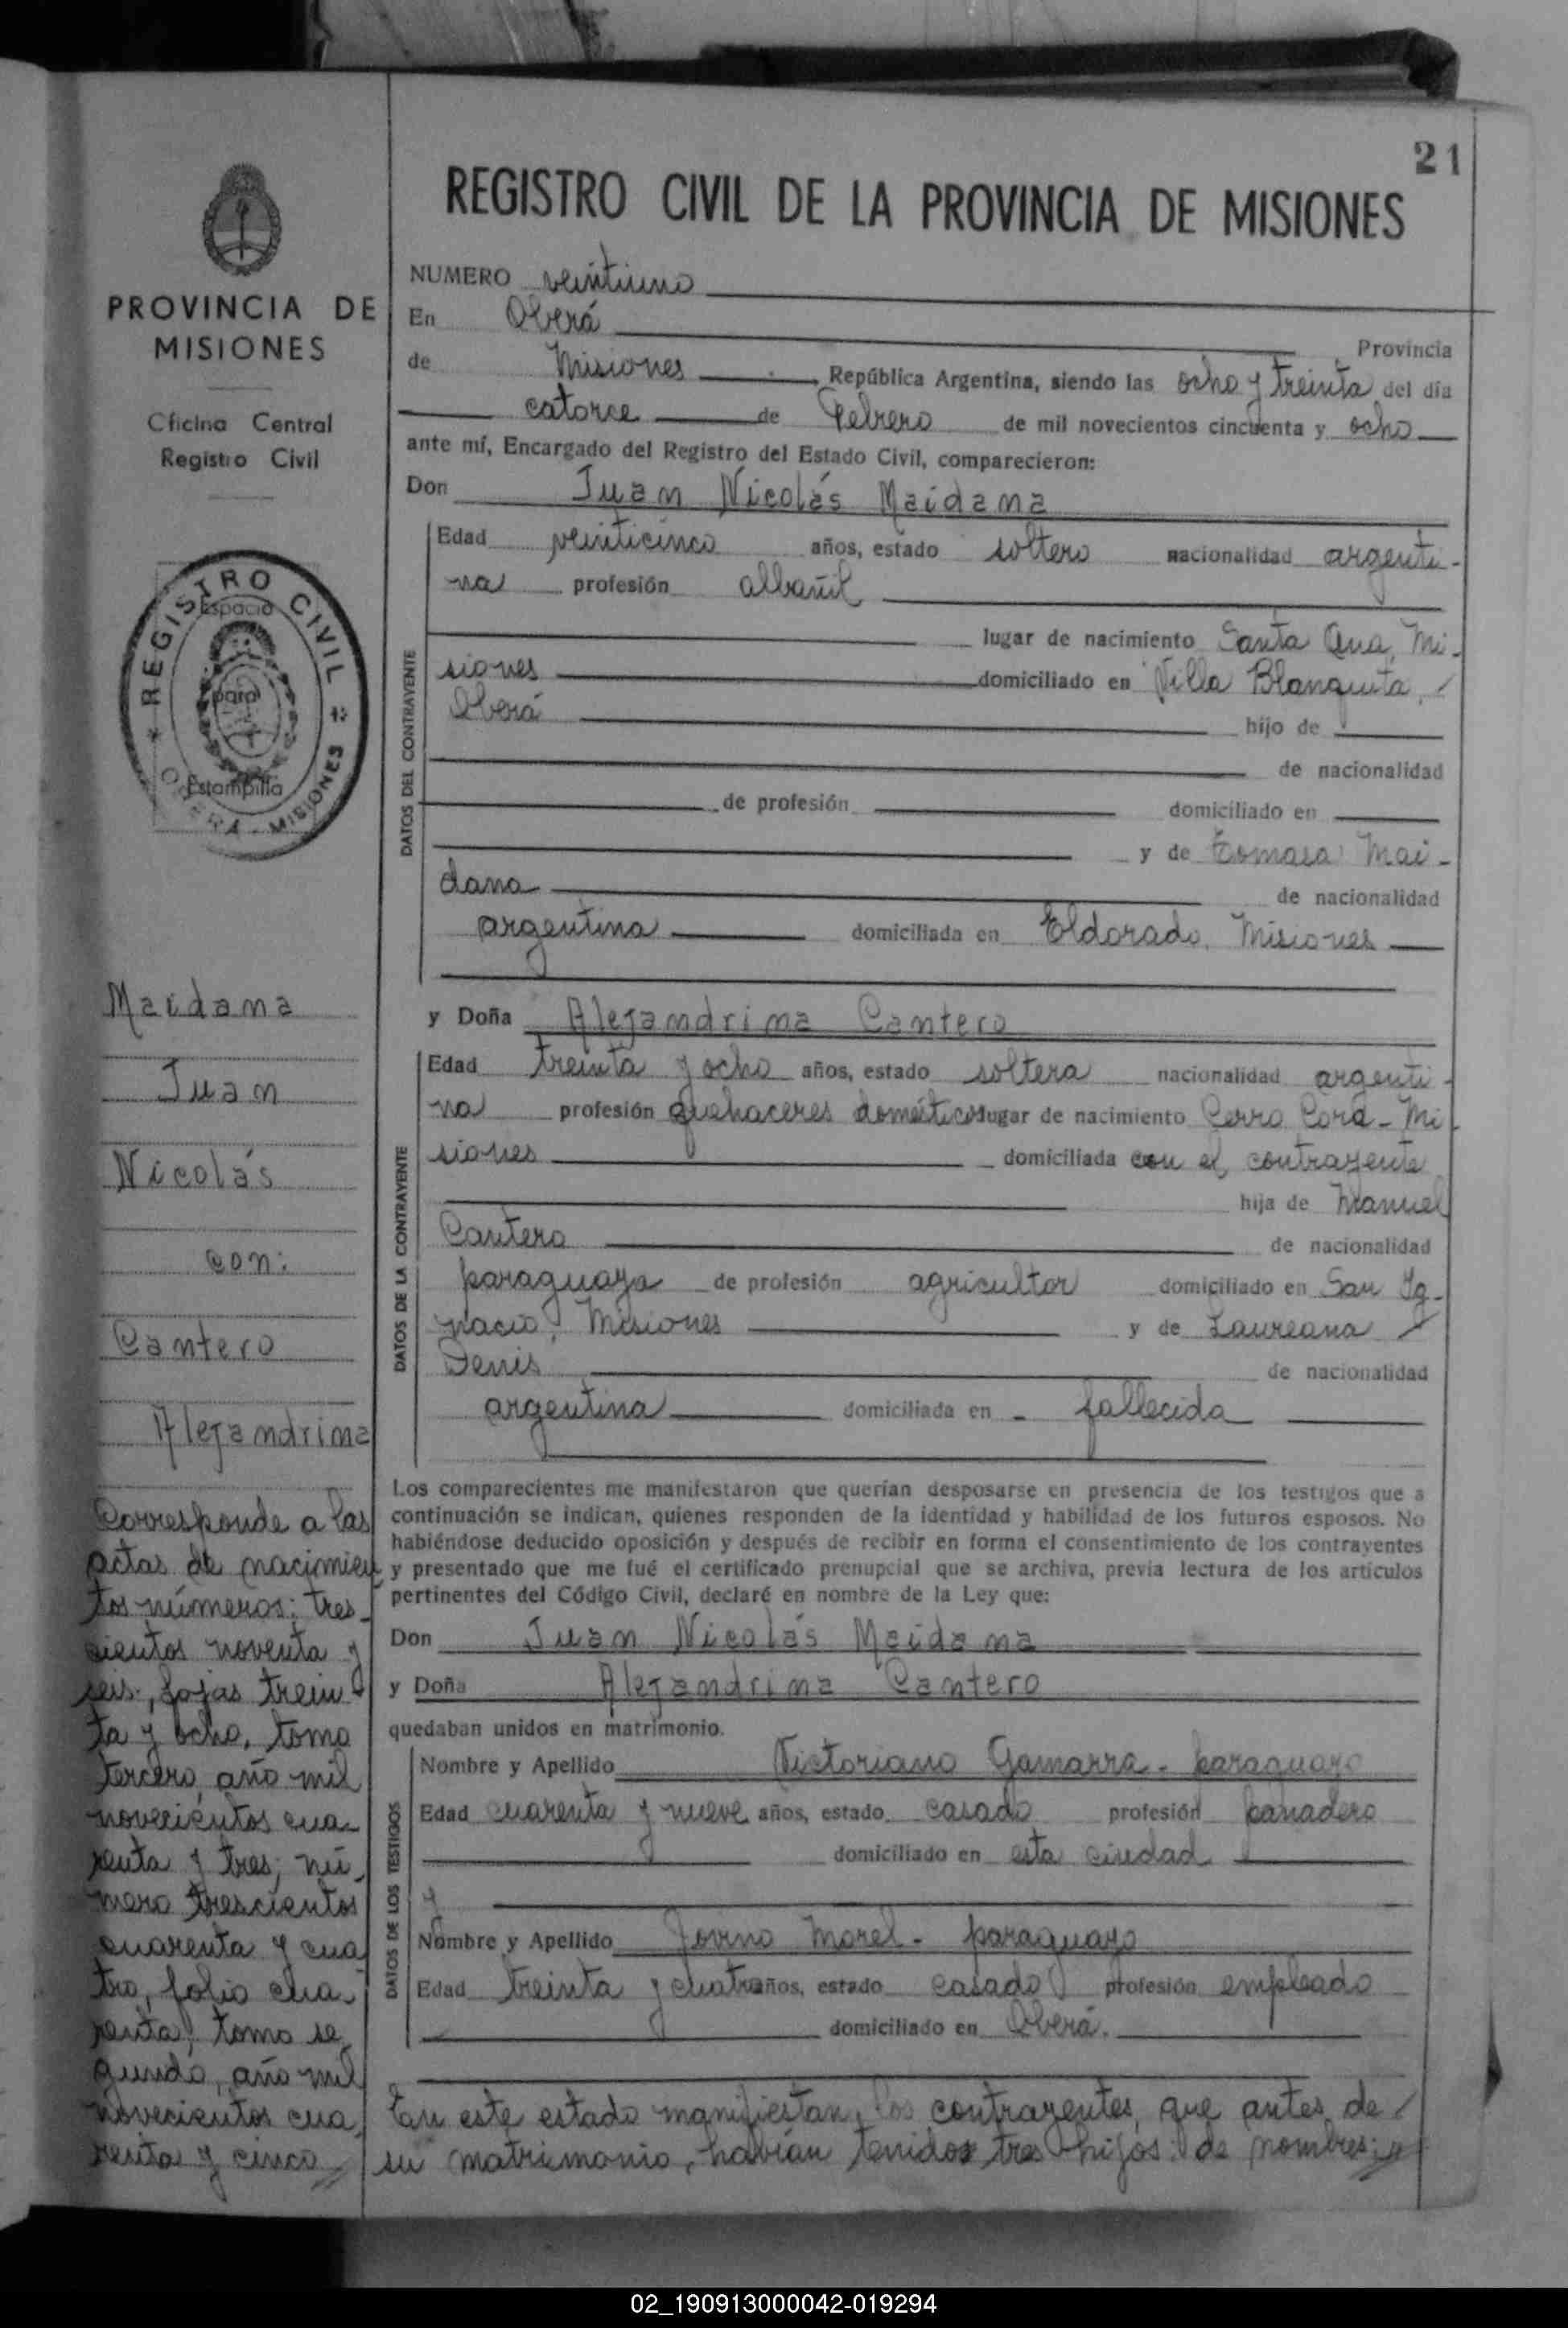 21
REGISTRO CIVIL DE LA PROVINCIA DE MISIONES
PROVINCIA DE
MISIONES
Oficina Central
Registro Civil
REGISTRO CIVIL
OBERA - MISIONES
Espacio
para
Estampilla
Maidana
Juan
Nicolás
con:
Cantero
Alejandrina
Corresponde a las
actas de nacimien
tos números: tres-
cientos noventa y
seis, fojas trein-
ta y ocho, tomo
tercero, año mil
novecientos cua-
renta y tres; nú-
mero trescientos
cuarenta y cua-
tro, folio cua-
renta, tomo se-
gundo, año mil
novecientos cua-
renta y cinco
NUMERO veintiuno
En Oberá Provincia
de Misiones República Argentina, siendo las ocho y treinta del día
catorce de Febrero de mil novecientos cincuenta y ocho
ante mí, Encargado del Registro del Estado Civil, comparecieron:
Don Juan Nicolás Maidana
DATOS DEL CONTRAYENTE
Edad veinticinco años, estado soltero nacionalidad argenti-
na profesión albañil
lugar de nacimiento Santa Ana, Mi-
siones domiciliado en Villa Blanquita,
Oberá hijo de
de nacionalidad
de profesión domiciliado en
y de Tomasa Mai-
dana de nacionalidad
argentina domiciliada en Eldorado, Misiones
y Doña Alejandrina Cantero
DATOS DE LA CONTRAYENTE
Edad treinta y ocho años, estado soltera nacionalidad argenti-
na profesión quehaceres domésticos lugar de nacimiento Cerro Corá - Mi
siones domiciliada con el contrayente
hija de Manuel
Cantero de nacionalidad
paraguaya de profesión agricultor domiciliado en San Ig-
nacio, Misiones y de Laureana
Denis de nacionalidad
argentina domiciliada en - fallecida
Los comparecientes me manifestaron que querían desposarse en presencia de los testigos que a
continuación se indican, quienes responden de la identidad y habilidad de los futuros esposos. No
habiéndose deducido oposición y después de recibir en forma el consentimiento de los contrayentes
y presentado que me fué el certificado prenupcial que se archiva, previa lectura de los artículos
pertinentes del Código Civil, declaré en nombre de la Ley que:
Don Juan Nicolás Maidana
y Doña Alejandrina Cantero
quedaban unidos en matrimonio.
DATOS DE LOS TESTIGOS
Nombre y Apellido Victoriano Gamarra - paraguayo
Edad cuarenta y nueve años, estado casado profesión panadero
domiciliado en esta ciudad
y
Nombre y Apellido Jovino Morel - paraguayo
Edad treinta y cuatro años, estado casado profesión empleado
domiciliado en Oberá.
En este estado manifiestan los contrayentes, que antes de
su matrimonio, habían tenidos tres hijos: de nombres:
02_190913000042-019294